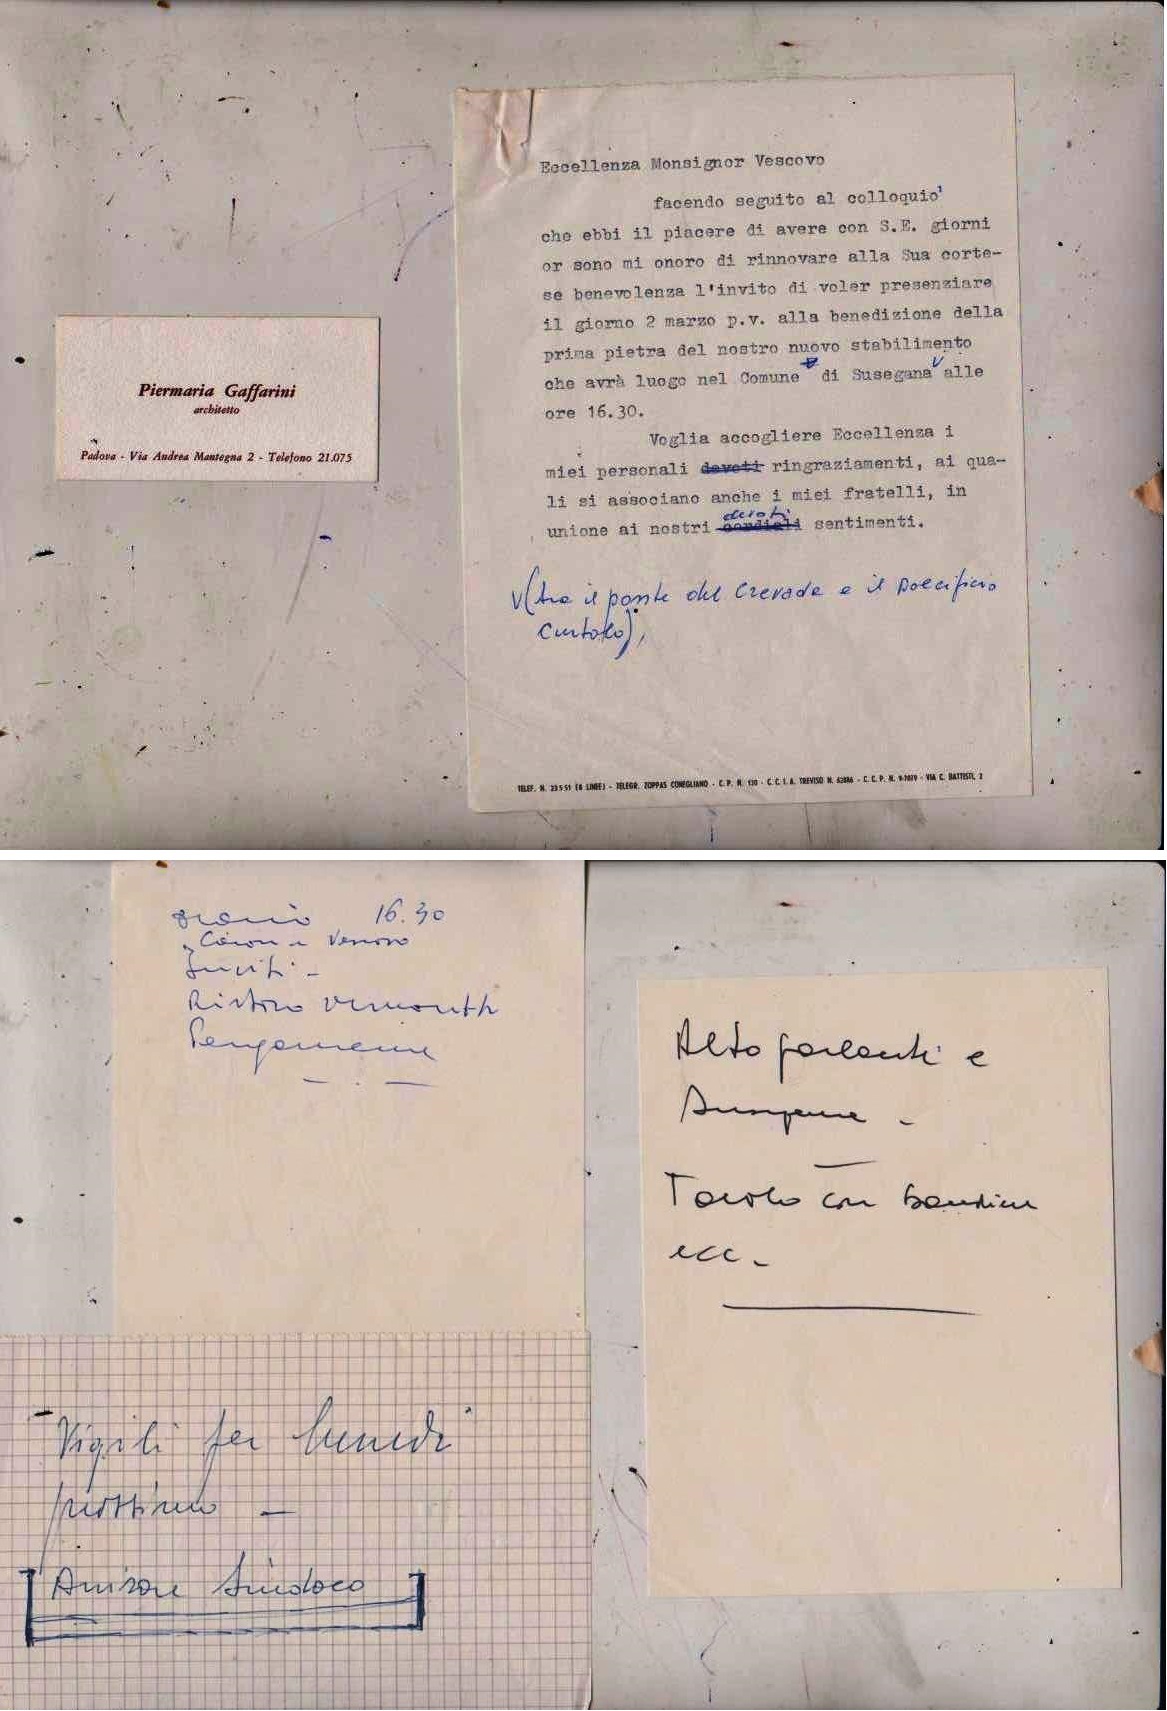 Piermaria Gaffarini
architetto
Padova - Via Andrea Mantegna 2 - Telefono 21.075
Eccellenza Monsignor Vescovo
facendo seguito al colloquio
che ebbi il piacere di avere con S.E. giorni
or sono mi onoro di rinnovare alla Sua corte-
se benevolenza l'invito di voler presenziare
il giorno 2 marzo p.v. alla benedizione della
prima pietra del nostro nuovo stabilimento
che avrà luogo nel Comune di Susegana V alle
ore 16.30.
Voglia accogliere Eccellenza i
miei personali devoti ringraziamenti, ai qua-
li si associano anche i miei fratelli, in
devoti
unione ai nostri cordiali sentimenti.
V (tra il ponte del Crevada e il
Curtolo),
TELEF. N. 23551 (8 LINEE) - TELEGR. ZOPPAS CONEGLIANO - C.P. N. 130 - C.C.I.A. TREVISO N. 62886 - C.C.P. N. 9-7079 - VIA C. BATTISTI, 2
orario 16.30
Vescovo
Inviti -
Ristoro vermouth
Pergamene
Alto parlanti e
Tavolo con bandiere
ecc.
Vigili per lunedì
prossimo -
Avvisare Sindaco